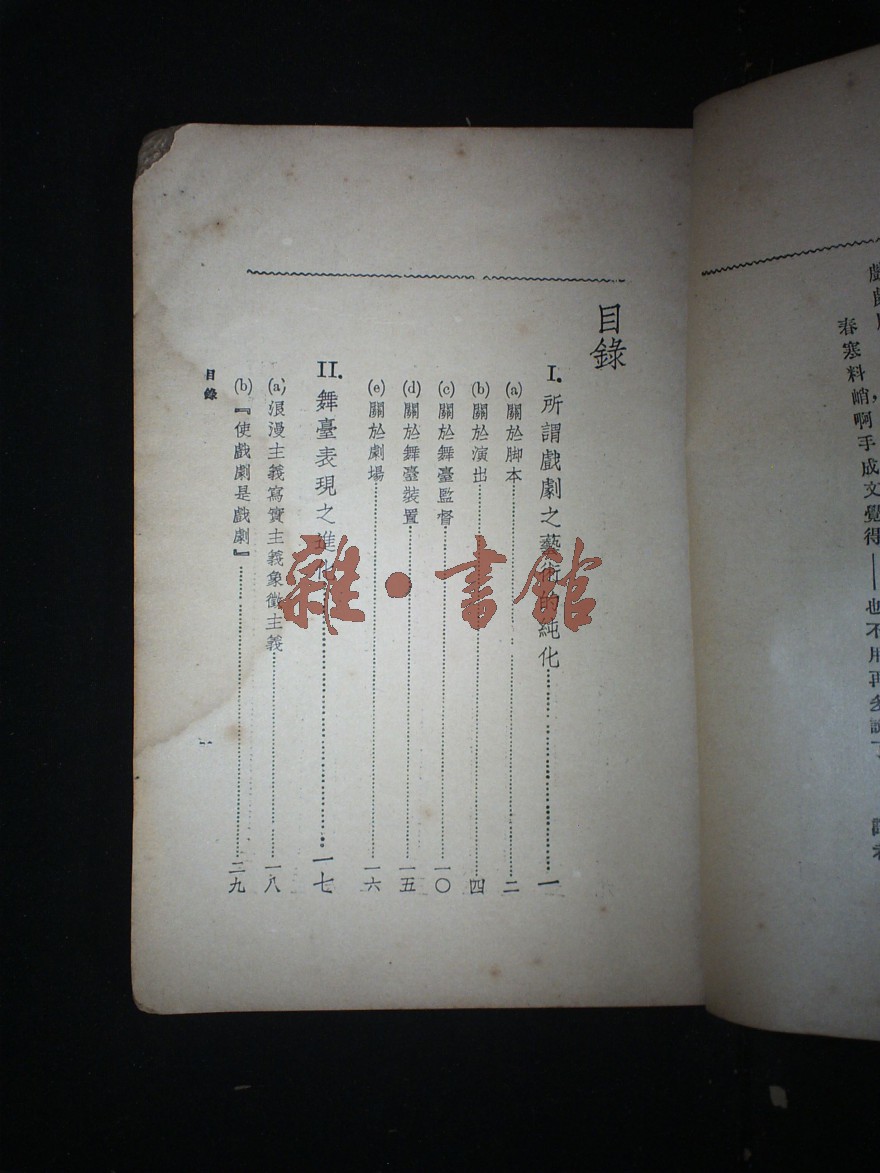 春寒料峭,啊手成文覺得——也不用再多說了
目錄
I. 所謂戲劇之藝術的純化……一
(a) 關於脚本……二
(b) 關於演出……四
(c) 關於舞臺監督……一〇
(d) 關於舞臺裝置……一五
(e) 關於劇場……一六
II. 舞臺表現之進化……一七
(a) 浪漫主義寫實主義象徵主義……一八
(b) 『使戲劇是戲劇』……二九
目錄
一
雜·書館